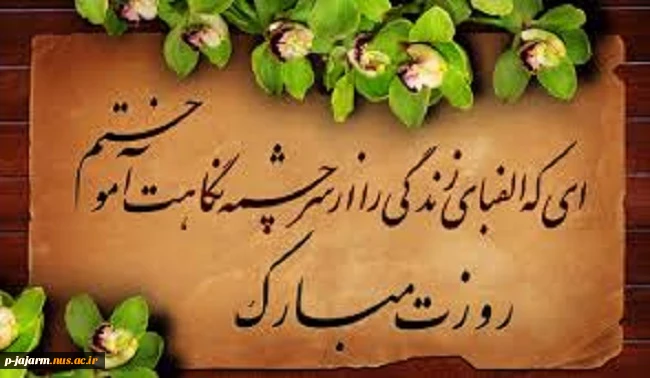 ای که الفبای زندگی را از سرچشمه نگاهت آموختم
روزت مبارک
p-jajarm.nus.ac.ir